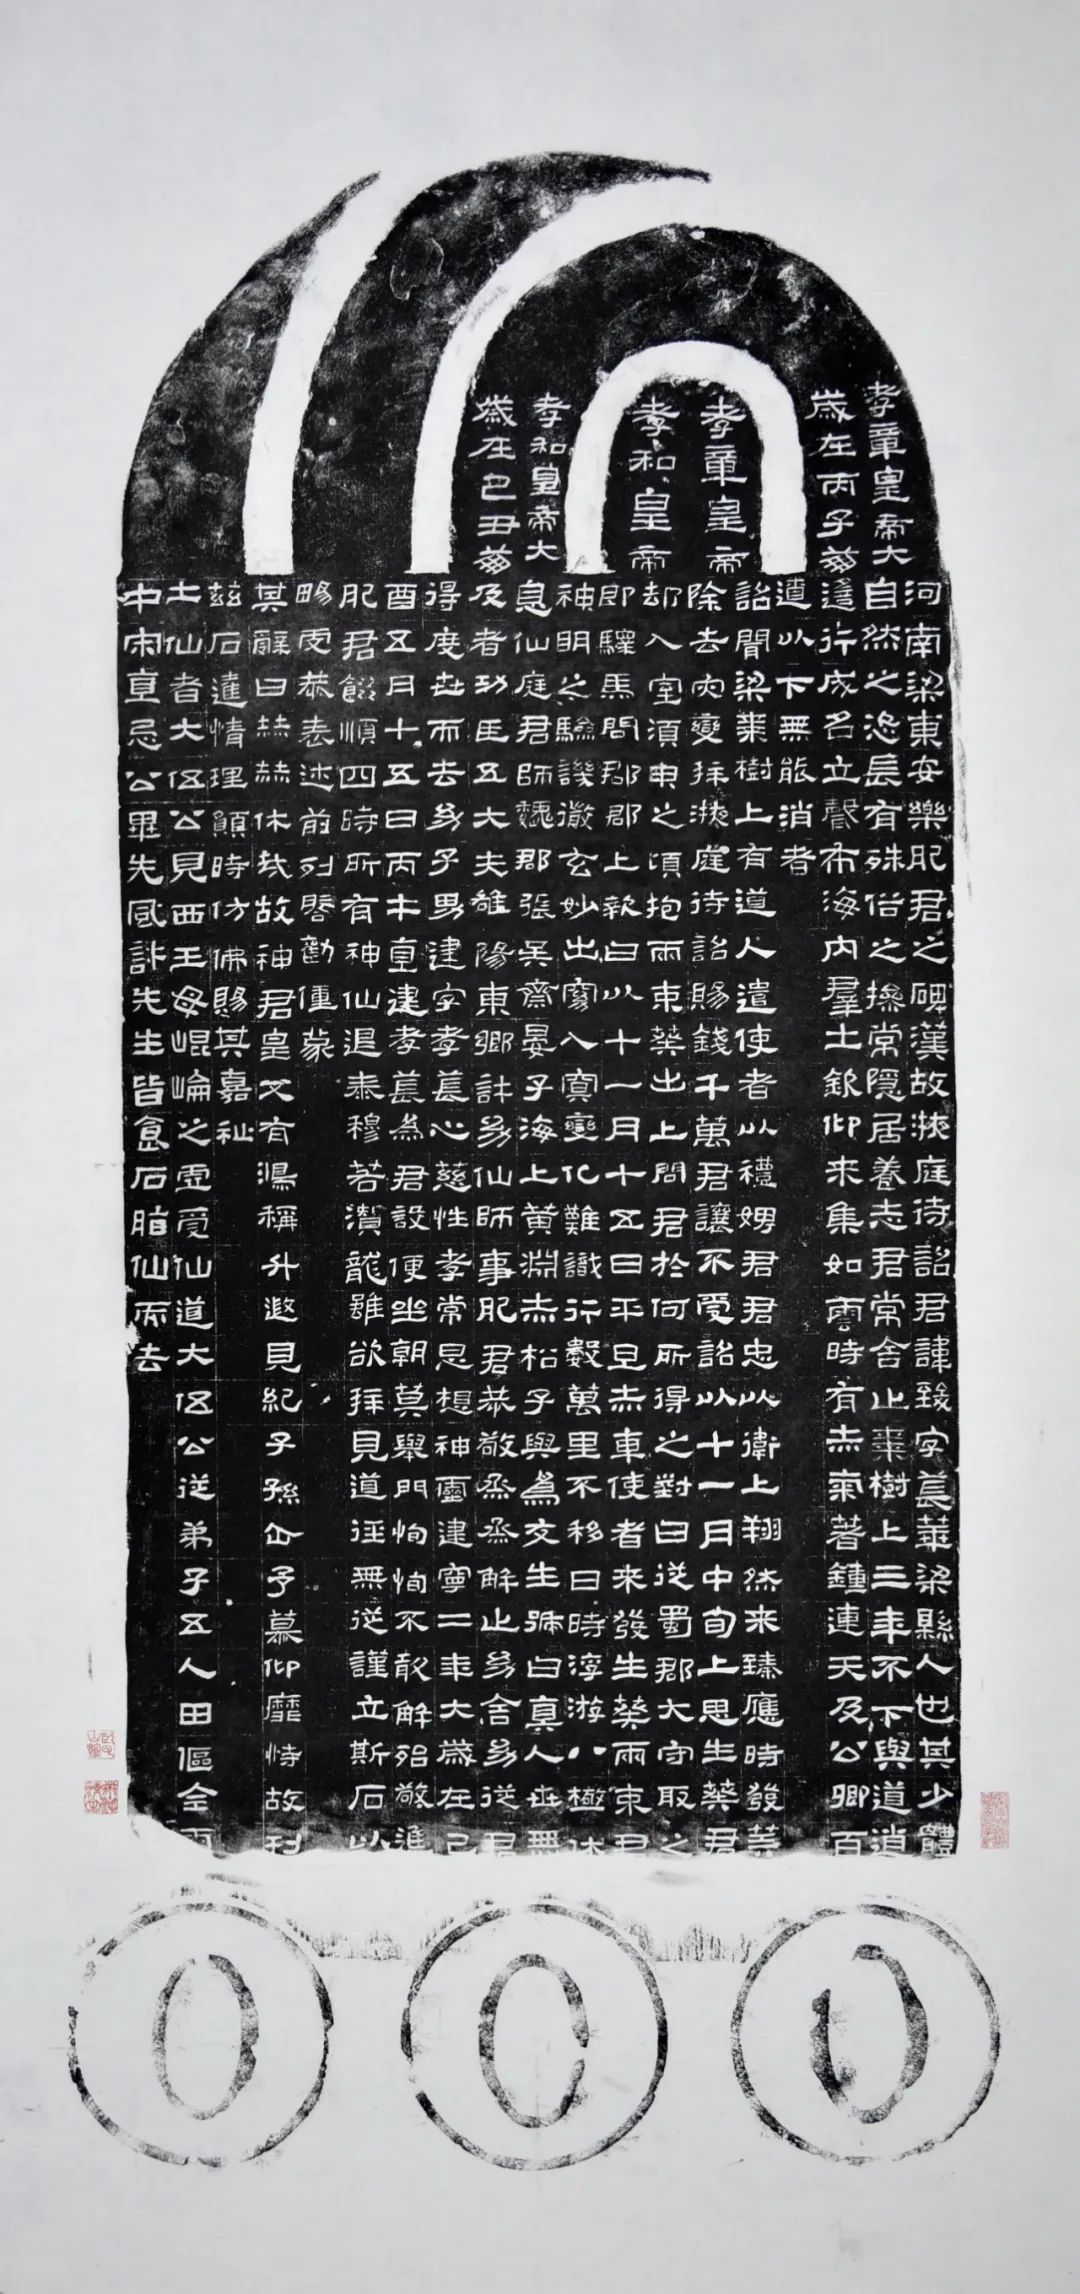 孝章皇帝大
歲在丙子崩
孝章皇帝
孝和皇帝
孝和皇帝大
歲在己丑崩
河南梁東安樂肥君之碑漢故掖庭待詔君諱致字萇華梁縣人也其少體
自然之恣長有殊俗之操常隱居養志君常舍止棗樹上三年不下與道逍
遙行成名立聲布海內羣士欽仰來集如雲時有赤氣著鍾連天及公卿百
遼以下無能消者
詔聞梁棗樹上有道人遣使者以禮娉君君忠以衛上翔然來臻應時發筭
除去灾變拜掖庭待詔賜錢千萬君讓不受詔以十一月中旬上思生葵君
却入室須臾之頃抱兩束葵出上問君於何所得之對曰從蜀郡大守取之
即驛馬問郡郡上報曰以十一月十五日平旦赤車使者來發生葵兩束君
神明之驗譏徹玄妙出窈入冥變化難識行數萬里不移日時浮游八極休
息仙庭君師魏郡張吴齋晏子海上黃淵赤松子與為友生號曰真人世無
及者功臣五大夫雒陽東鄉許幼仙師事肥君恭敬烝烝解止幼舍幼從君
得度世而去幼子男建字孝萇心慈性孝常思想神靈建寧二年大歲在己
酉五月十五日丙午直建孝萇為君設便坐朝莫舉門恂恂不敢解殆敬進
肥君餟順四時所有神仙退泰穆若潛龍雖欲拜見道徑無從謹立斯石以
暢虔恭表述前列啓勸僮蒙
其辭曰赫赫休哉故神君皇又有鴻稱升遐見紀子孫企予慕仰靡恃故刊
兹石達情理願時仿佛賜其嘉祉
土仙者大伍公見西王母崐崘之虛受仙道大伍公從弟子五人田傴全雨
中宋直忌公畢先風許先生皆食石脂仙而去